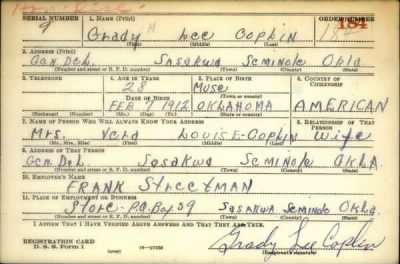 SERIAL NUMBER 1. NAME (Print) ORDER NUMBER
9 Grady Lee Coplin 184 184
(First) (Middle) (Last)
2. ADDRESS (Print)
Gen. Del. Sasakwa Seminole Okla
(Number and street or R. F. D. number) (Town) (County) (State)
3. TELEPHONE 4. AGE IN YEARS 5. PLACE OF BIRTH 6. COUNTRY OF CITIZENSHIP
28 Muse
DATE OF BIRTH (Town or county)
FEB 7 1912 OKLAHOMA AMERICAN
(Exchange) (Number) (Mo.) (Day) (Yr.) (State or country)
7. NAME OF PERSON WHO WILL ALWAYS KNOW YOUR ADDRESS 8. RELATIONSHIP OF THAT PERSON
Mrs. Vera Louise Coplin Wife
(Mr., Mrs., Miss) (First) (Middle) (Last)
9. ADDRESS OF THAT PERSON
Gen. Del. Sasakwa Seminole OKLA.
(Number and street or R. F. D. number) (Town) (County) (State)
10. EMPLOYER'S NAME
FRANK Streetman
11. PLACE OF EMPLOYMENT OR BUSINESS
Store - P.O. Box 59 Sasakwa Seminole Okla.
(Number and street or R. F. D. number) (Town) (County) (State)
I AFFIRM THAT I HAVE VERIFIED ABOVE ANSWERS AND THAT THEY ARE TRUE.
REGISTRATION CARD
D. S. S. Form 1 Grady Lee Coplin
(Registrant's signature)